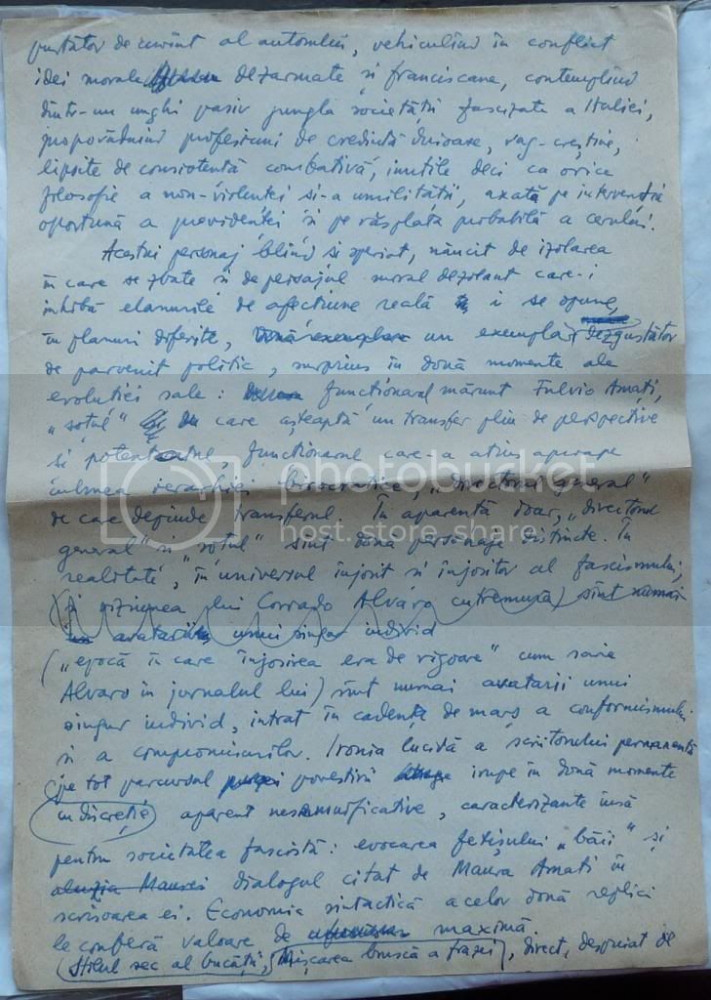 purtător de cuvînt al autorului, vehiculînd în conflict
idei morale dezarmate și franciscane, contemplînd
dintr-un unghi pasiv jungla societății fascizate a Italiei,
propovăduind profesiuni de credință duioase, vag-creștine,
lipsite de consistență combativă, inutile deci ca orice
filosofie a non-violenței și-a umilității, axată pe intervenția
oportună a providenței și pe răsplata probabilă a cerului.
Acestui personaj blînd și speriat, năucit de izolarea
în care se zbate și de peisajul moral dezolant care-i
inhibă elanurile de afecțiune reală i se opune,
în planuri diferite, un exemplar dezgustător
de parvenit politic, surprins în două momente ale
evoluției sale: funcționarul mărunt Fulvio Amati,
„soțul" care așteaptă un transfer plin de perspective
și potentatul, funcționarul care a atins aproape
culmea ierarhiei birocratice, „directorul general"
de care depinde transferul. În aparență doar, „directorul
general" și „soțul" sînt două personaje distincte. În
realitate, în universul înjosit și înjositor al fascismului,
(și viziunea lui Corrado Alvaro cutremură) sînt numai
avatarii unui singur individ
(„epocă în care înjosirea era de rigoare" cum scrie
Alvaro în jurnalul lui) sînt numai avatarii unui
singur individ, intrat în cadența de marș a conformismului
și a compromisurilor. Ironia lucidă a scriitorului permanentă
pe tot parcursul povestirii irupe în două momente
cu discreție aparent nesemnificative, caracterizante însă
pentru societatea fascistă: evocarea fetișului „băii" și
aluzia Maurei dialogul citat de Maura Amati în
scrisoarea ei. Economia sintactică a celor două replici
le conferă valoare de maximă.
Stilul sec al bucății, Mișcarea bruscă a frazei, direct, despuiat de
host. store. share.
photobucket